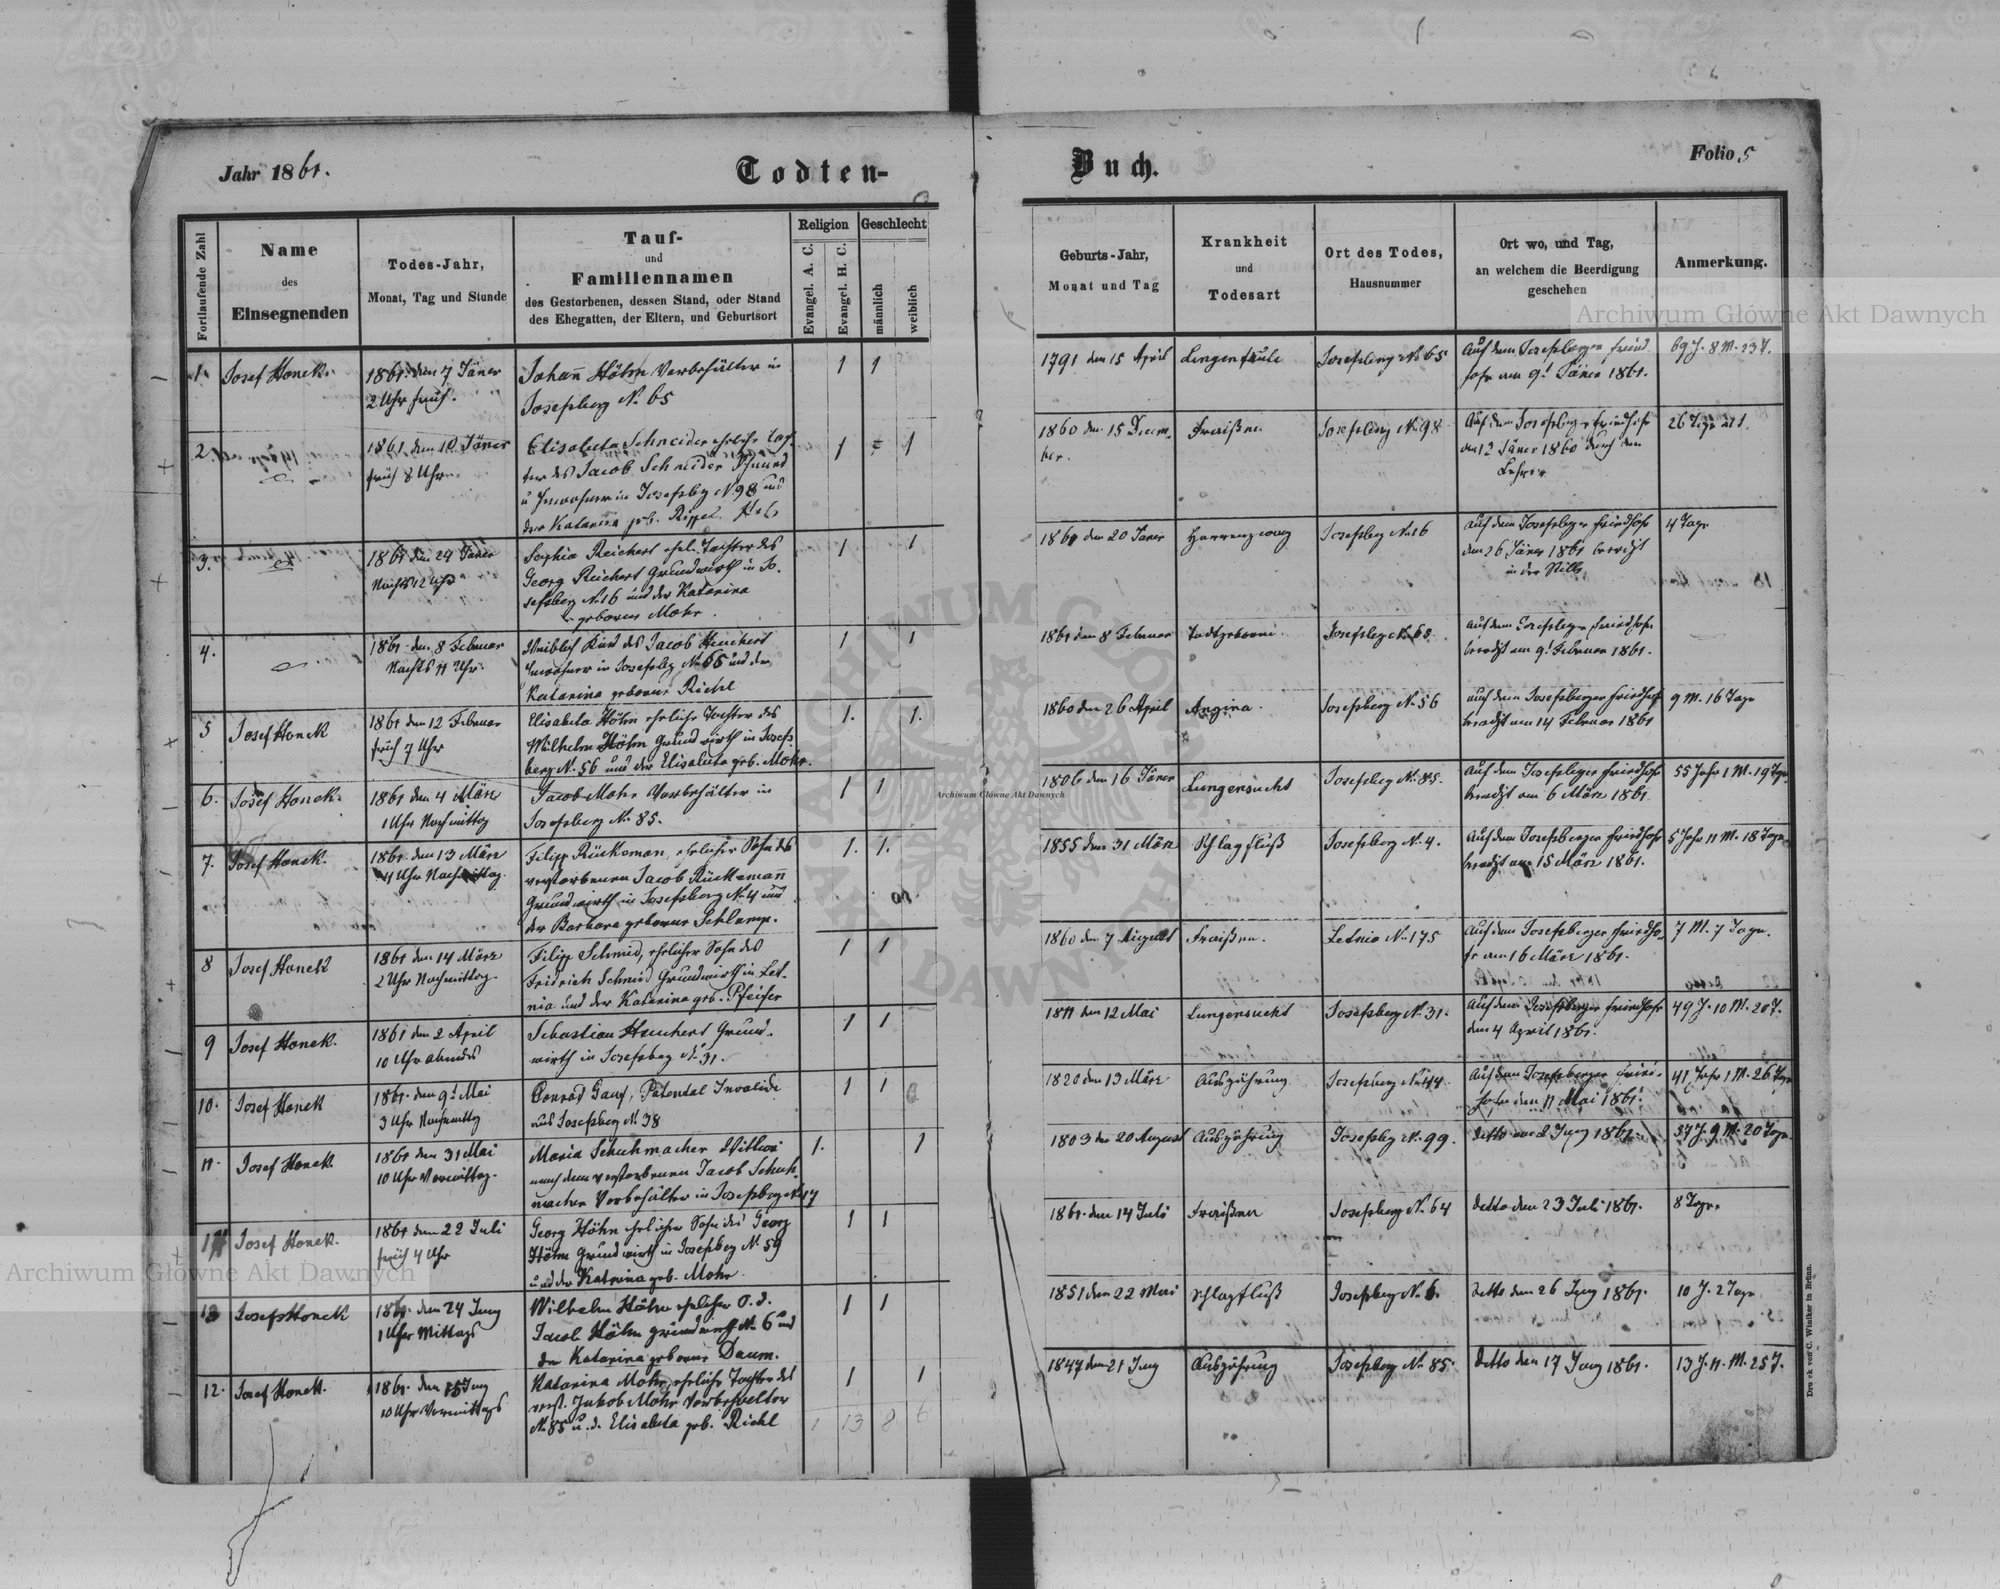 Jahr 1861.
Todten-
Buch.
Folio 5
Fortlaufende Zahl
Name
des
Einsegnenden
Todes-Jahr,
Monat, Tag und Stunde
Tauf-
und
Familiennamen
des Gestorbenen, dessen Stand, oder Stand
des Ehegatten, der Eltern, und Geburtsort
Religion
Evangel. A. C.
Evangel. H. C.
Geschlecht
männlich
weiblich
Geburts-Jahr,
Monat und Tag
Krankheit
und
Todesart
Ort des Todes,
Hausnummer
Ort wo, und Tag,
an welchem die Beerdigung
geschehen
Anmerkung.
1. Josef Honek.
1861. den 7 Jäner
2 Uhr früh.
Johañ Höhn Vorbehälter in
Josefsberg N. 65
1 1
1791 den 15 April
Lungenfäule
Josefsberg N. 65
Auf dem Josefsberger Fried
hofe am 9t Jäner 1861.
69 J. 8 M. 23 T.
2.
1861. den 10 Jäner
früh 8 Uhr
Elisabeta Schneider eheliche Toch
ter des Jacob Schneider
u Inwohner in Josefsbg N. 98 und
der Katarina geb. Rippel.
1 1
1860 den 15 Decem
ber.
Fraißen
Josefsberg N. 98
Auf dem Josefsberger Friedhofe
den 12 Jäner 1860 durch den
Lehrer
26 Tage alt
3.
1861 den 24 Jäner
Nachts 12 Uhr
Sophia Reichert ehel. Tochter des
Georg Reichert Grundwirth in Jo-
sefsberg N. 16 und der Katarina
geborne Mohr.
1 1
1861 den 20 Jäner
Josefsberg N. 16
auf dem Josefsberger Friedhofe
den 26 Jäner 1861 beerdigt
in der Stille
4 Tage
4.
1861. den 8 Februar
Nachts 11 Uhr
Weiblich Kind des Jacob Heuchert
Inwohner in Josefsbg N. 65 und der
Katarina geborne Richl
1 1
1861 den 8 Februar
Todtgeboren.
Josefsbg N. 65.
auf dem Josefsberger Friedhofe
beerdigt am 9t Februar 1861.
5 Josef Honek
1861 den 12 Februar
früh 7 Uhr
Elisabeta Höhn eheliche Tochter des
Wilhelm Höhn Grundwirth in Josefs
berg N. 56 und der Elisabeta geb. Mohr.
1. 1.
1860 den 26 April
Angina.
Josefsberg N. 56
auf dem Josefsberger Friedhofe
beerdigt am 14 Februar 1861
9 M. 16 Tage
6. Josef Honek.
1861 den 4 März
1 Uhr Nachmittag
Jacob Mohr Vorbehälter in
Josefsberg N. 85.
1 1
1806 den 16 Jäner
Lungensucht
Josefsberg N. 85.
Auf dem Josefsberger Friedhofe
beerdigt am 6 März 1861.
55 Jahr 1 M. 19 Tge
7. Josef Honek.
1861. den 13 März
4 Uhr Nachmittag.
Filipp Rückeman, ehelicher Sohn des
verstorbenen Jacob Rückemañ
Grundwirth in Josefsberg N. 4 und
der Barbara geborne Schlamp.
1. 1.
1855 den 31 März
Schlagfluß
Josefsberg N. 4.
Auf dem Josefsberger Friedhofe
beerdigt am 15 März 1861.
5 Jahr 11 M. 18 Tage
8 Josef Honek
1861 den 14 März
2 Uhr Nachmittag.
Filipp Schmid, ehelicher Sohn des
Fridrich Schmid Grundwirth in Let-
nia und der Katarina geb. Pfeifer
1 1
1860 den 7 August
Fraißen.
Letnia N. 175
Auf dem Josefsberger Friedho-
fe am 16 März 1861.
7 M. 7 Tage.
9 Josef Honek.
1861 den 2 April
10 Uhr abends
Sebastian Heuchert Grund-
wirth in Josefsberg N. 31.
1 1
1811 den 12 Mai
Lungensucht
Josefsberg N. 31.
Auf dem Josefsberger Friedhofe
den 4 April 1861.
49 J. 10 M. 20 T.
10. Josef Honek
1861. den 9t Mai
3 Uhr Nachmittag
Conrad Ganz, Patental Invalide
aus Josefsberg N. 38
1 1
1820 den 13 März
Auszehrung
Josefsberg N. 44.
Auf dem Josefsberger Fried-
hofe den 11 Mai 1861.
41 Jahr 1 M. 26 Tage
11. Josef Honek.
1861 den 31 Mai
10 Uhr Vormittag.
Maria Schuhmacher Wittwe
nach dem verstorbenen Jacob Schuh
macher Vorbehälter in Josefsberg N. 17
1. 1
1803 den 20 August
Auszehrung
Josefsbg N. 99.
detto am 2 Juny 1861.
57 J. 9 M. 20 Tage
Josef Honek.
1861 den 22 Juli
früh 4 Uhr
Georg Höhn ehelicher Sohn des Georg
Höhn Grundwirth in Josefsberg N. 59
und der Katarina geb. Mohr.
1 1
1861. den 14 Juli
Fraißen
Josefsberg N. 64
detto den 23 Juli 1861.
8 Tage.
13 Josef Honek
1861. den 24 Juny
1 Uhr Mittags
Wilhelm Höhn ehelicher S. d.
Jacob Höhn Grundwirth N. 6 und
der Katarina geborne Daum.
1 1
1851 den 22 Mai
Schlagfluß
Josefsberg N. 6.
detto den 26 Juny 1861.
10 J. 2 Tage
12. Josef Honek.
1861. den 15 Juny
10 Uhr Vormittags
Katarina Mohr, eheliche Tochter des
verst. Jakob Mohr Vorbehelter
N. 85 u. d. Elisabeta geb. Richl
1 1
1 13 8 6
1847 den 21 Juny
Auszehrung
Josefsberg N. 85.
detto den 17 Juny 1861.
13 J. 11. M. 25 T.
Druck von C. Winiker in Brünn.
Archiwum Główne Akt Dawnych
Archiwum Główne Akt Dawnych
Archiwum Główne Akt Dawnych
ARCHIWUM GŁÓWNE AKT DAWNYCH